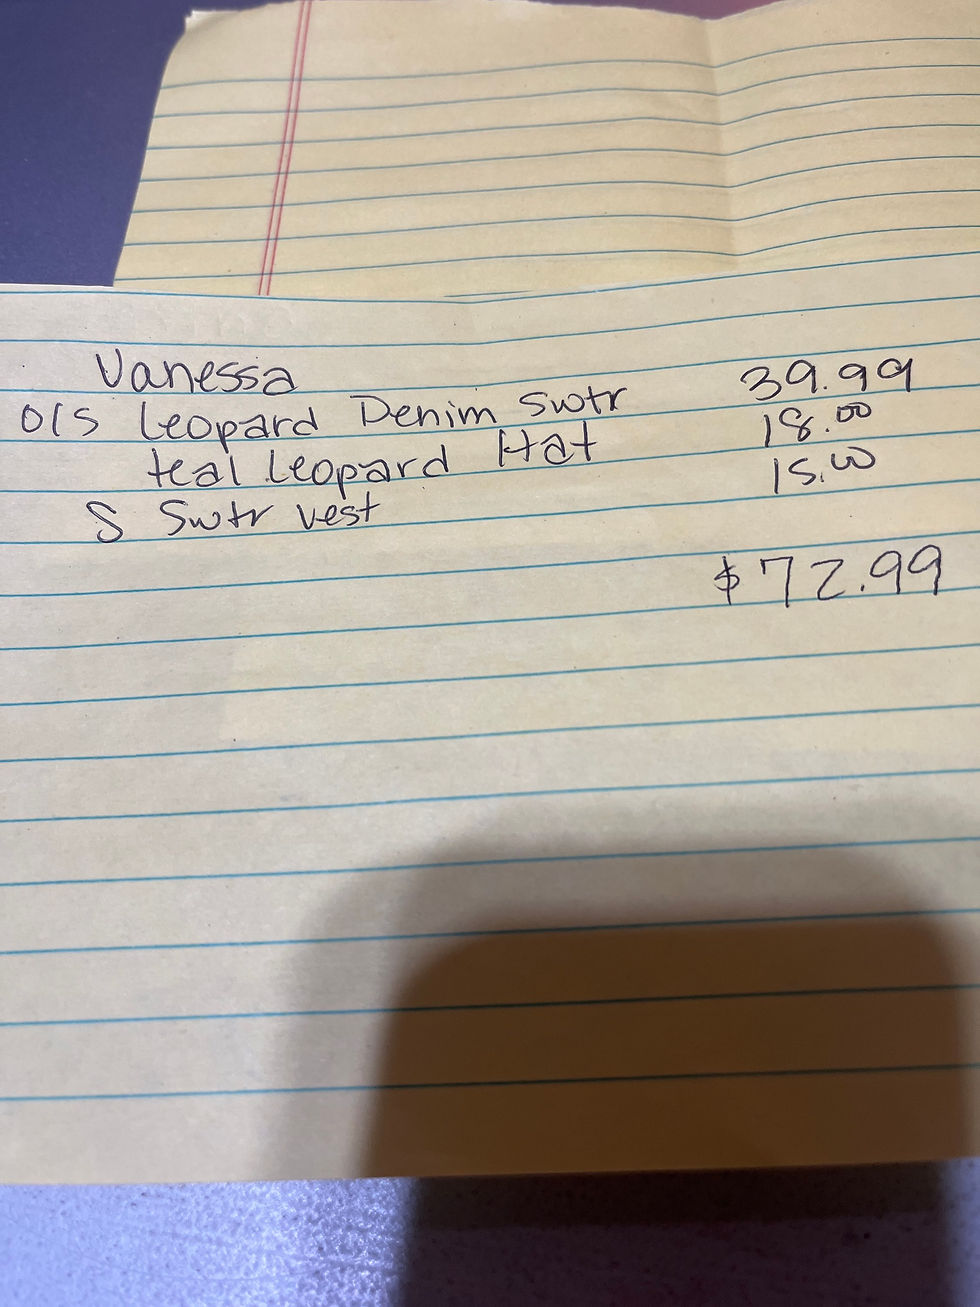 Vanessa
O/S Leopard Denim Swtr 39.99
teal Leopard Hat 18.00
S Swtr vest 15.00
$72.99